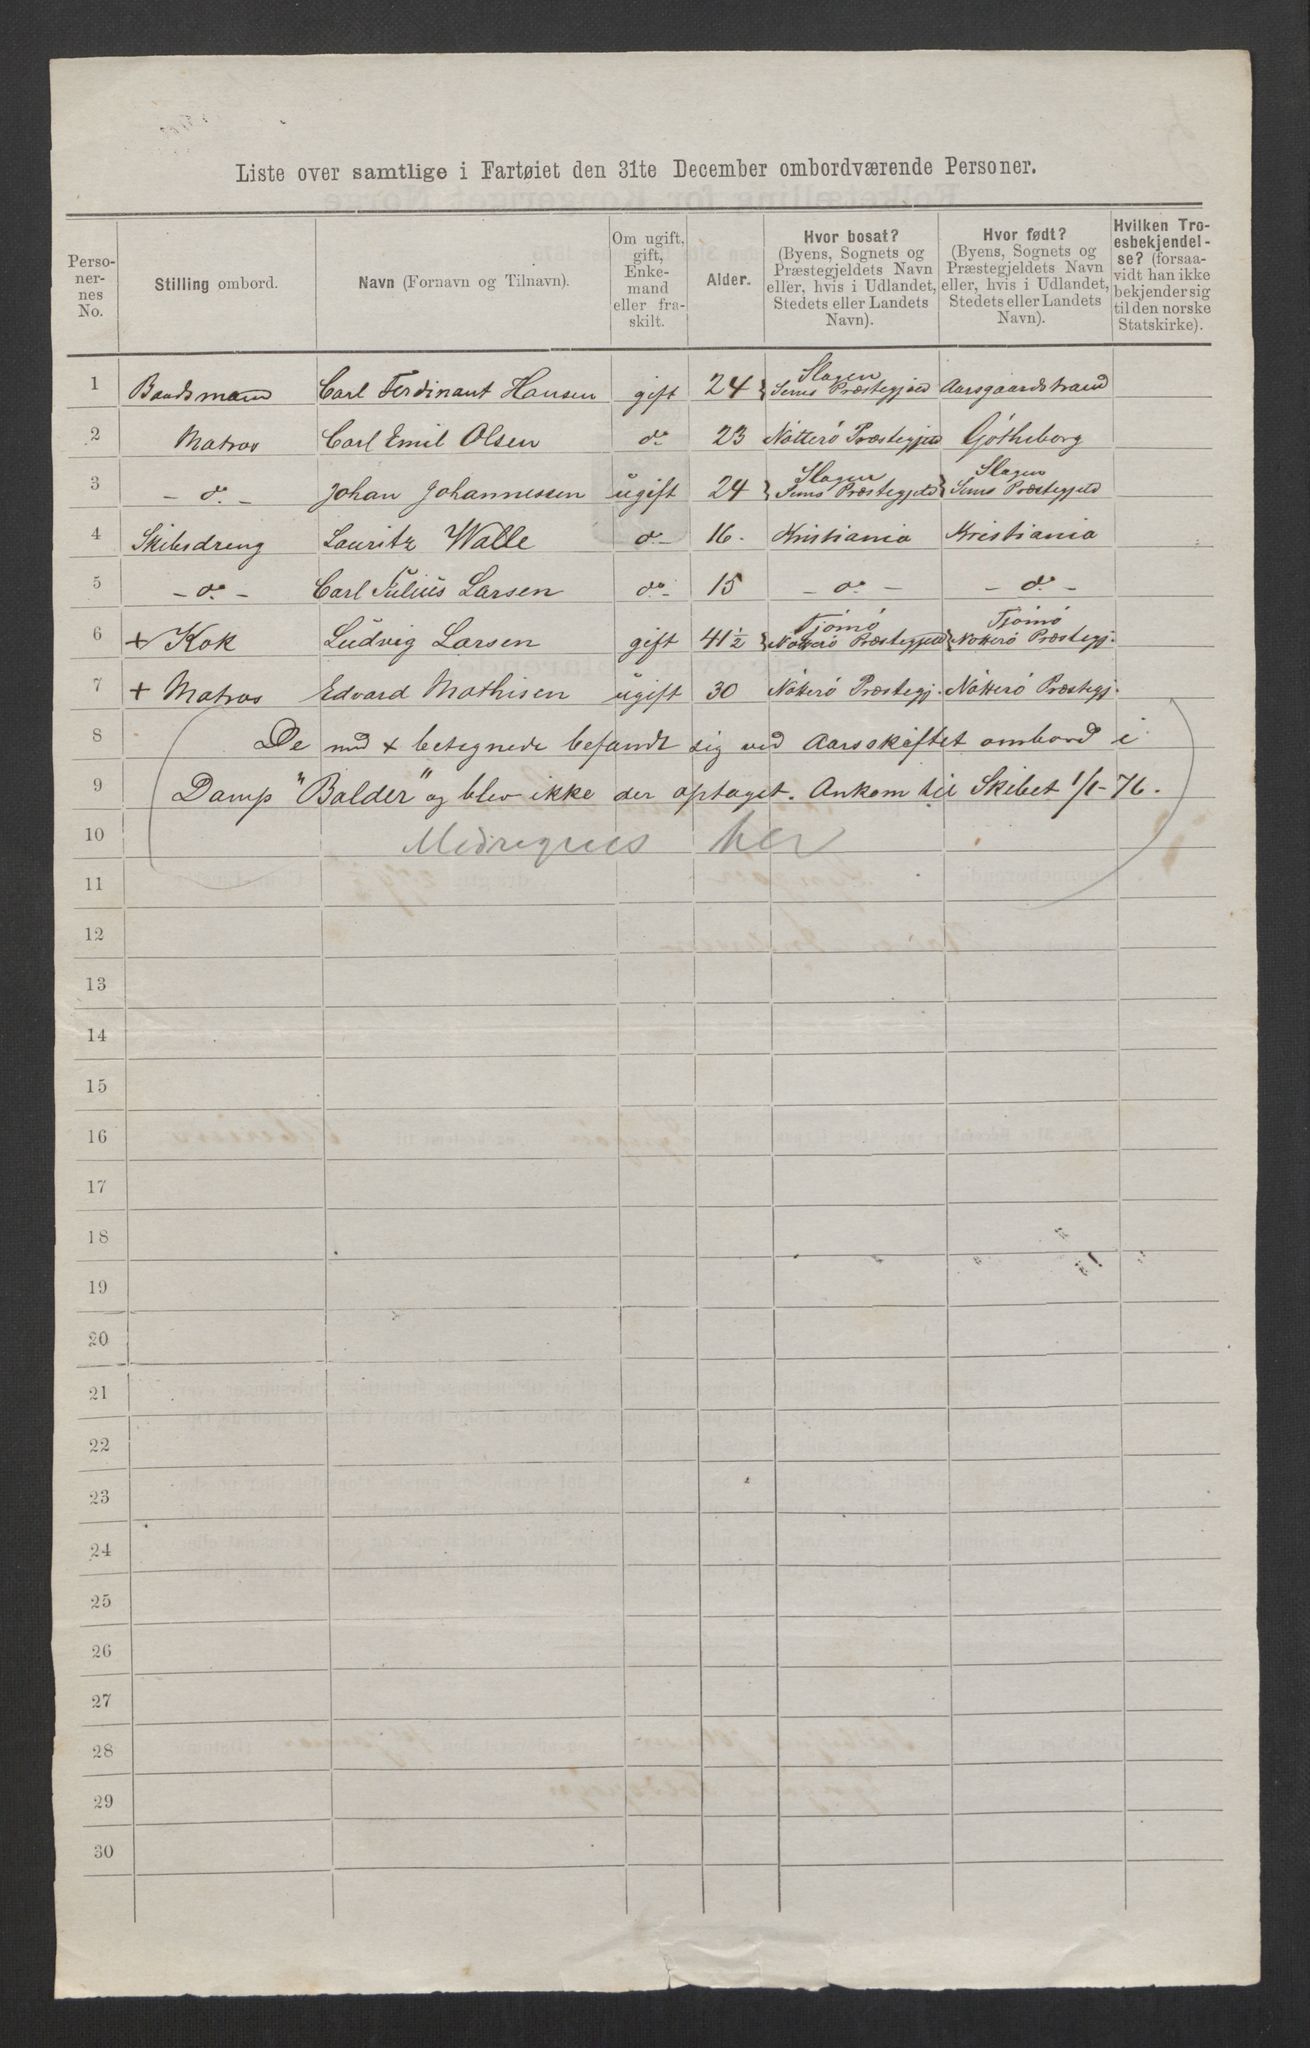 Liste over samtlige i Fartøiet den 31te December ombordværende Personer.
Perso-
ner-
nes
No.
Stilling ombord.
Navn (Fornavn og Tilnavn).
Om ugift,
gift,
Enke-
mand
eller fra-
skilt.
Alder.
Hvor bosat?
(Byens, Sognets og
Præstegjeldets Navn
eller, hvis i Udlandet,
Stedets eller Landets
Navn).
Hvor født?
(Byens, Sognets og
Præstegjeldets Navn
eller, hvis i Udlandet,
Stedets eller Landets
Navn).
Hvilken Tro-
esbekjendel-
se? (forsaa-
vidt han ikke
bekjender sig
til den norske
Statskirke).
1 Baadsmand Carl Ferdinant Hansen gift 24 } Slagen Sems Præstegjæld Aarsgaardstrand
2 Matros Carl Emil Olsen do 23 Nötterö Præstegjeld Götheborg
3 - do - Johan Johannessen ugift 24 } Slagen Sems Præstegjeld } Slagen Sems Præstegjeld
4 Skibsdreng Lauritz Walle do - 16. Kristiania Kristiania
5 - do - Carl Julius Larsen do - 15 - do - - do -
6 + Kok Ludvig Larsen gift 41½ } Tjömö Nötterö Præstegjeld } Tjömö Nötterö Præstegj.
7 + Matros Edvard Mathisen ugift 30 Nötterö Præstegj. Nötterö Præstegj.
8 De med + betegnede befandt sig ved Aarsskiftet ombord i
9 Damp "Balder" og blev ikke der optaget. Ankom til Skibet 1/1-76.
10 Medregnes her
11
12
13
14
15
16
17
18
19
20
21
22
23
24
25
26
27
28
29
30